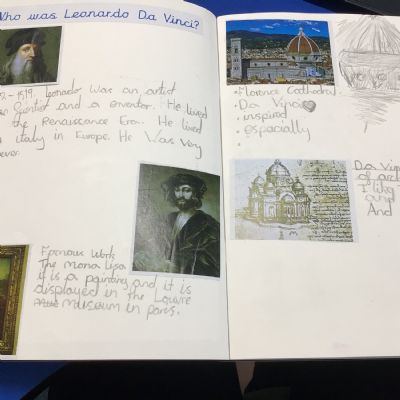 Who was Leonardo Da Vinci?
- 1519. Leonardo was an artist
Scientist and a enventor. He lived
the Renaissance Era. He lived
italy in Europe. He was very
ever.
Famous Work
The mona lisa
it is a painting and it is
displayed in the Louvre
museum in paris.
• Florence Cathedral.
• Da Vinci
• inspired
• especially
•
Da Vin
of art
I like
and
And